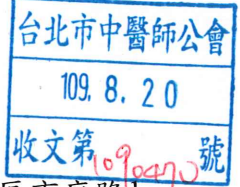 台北市中醫師公會
109. 8. 20
收文第1090470號